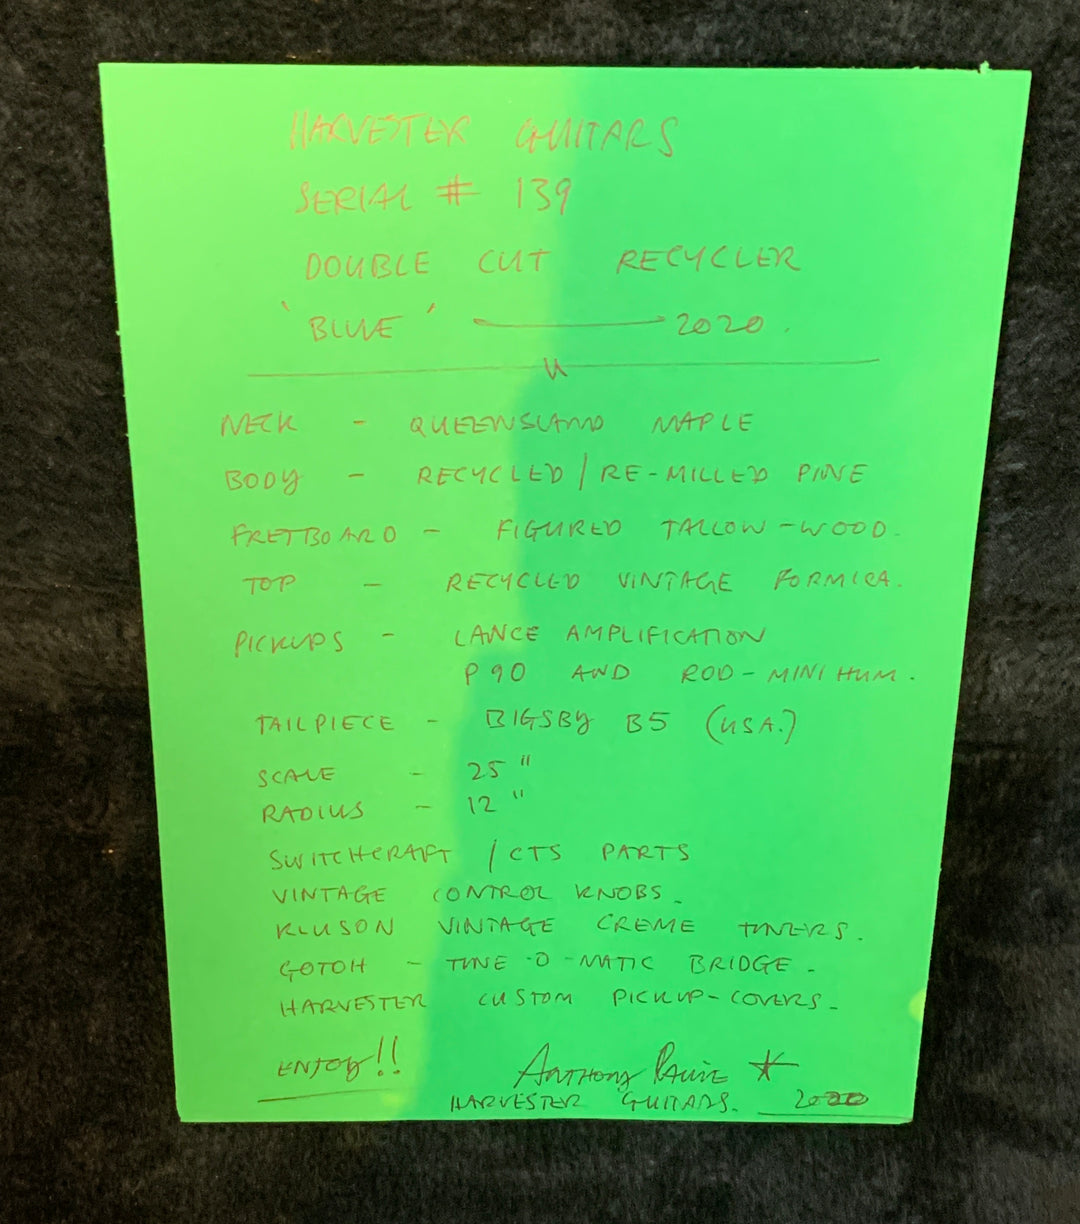 HARVESTER GUITARS
SERIAL # 139
DOUBLE CUT RECYCLER
'BLUE' — 2020.
NECK - QUEENSLAND MAPLE
BODY - RECYCLED / RE-MILLED PINE
FRETBOARD - FIGURED TALLOW-WOOD.
TOP - RECYCLED VINTAGE FORMICA.
PICKUPS - LANCE AMPLIFICATION
P90 AND ROD-MINI HUM.
TAILPIECE - BIGSBY B5 (USA.)
SCALE - 25"
RADIUS - 12"
SWITCHCRAFT / CTS PARTS
VINTAGE CONTROL KNOBS.
KLUSON VINTAGE CREME TUNERS.
GOTOH - TUNE-O-MATIC BRIDGE.
HARVESTER CUSTOM PICKUP-COVERS.
ENJOY!! ANTHONY
HARVESTER GUITARS. 2020